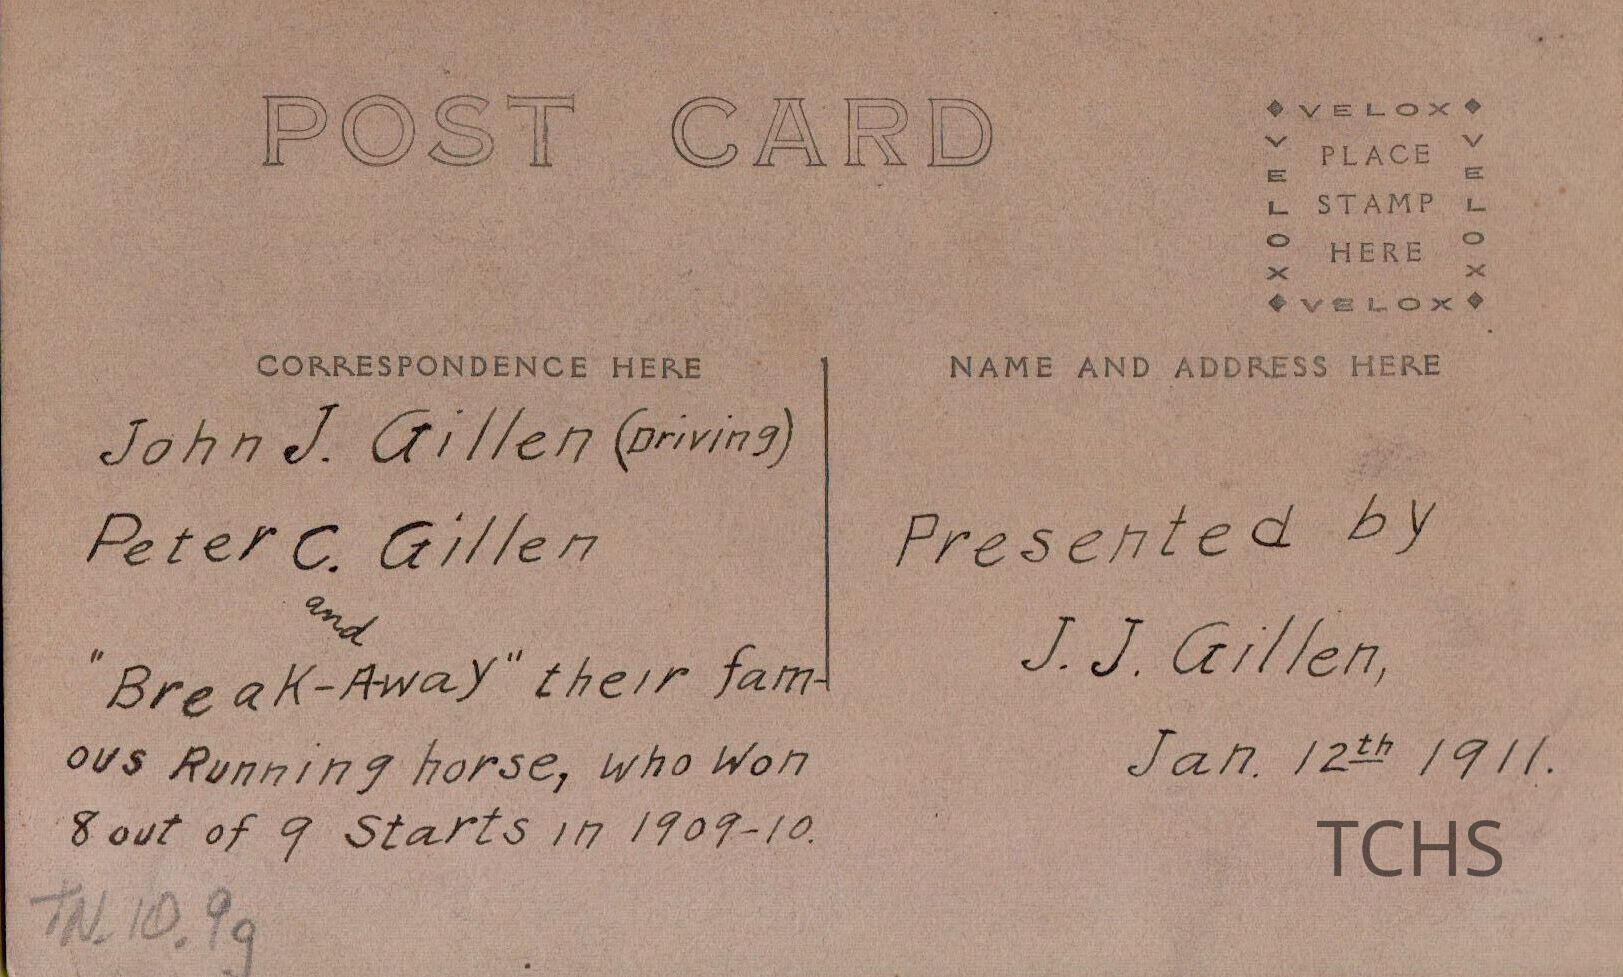 POST CARD
VELOX
VELOX
PLACE
STAMP
HERE
VELOX
VELOX
CORRESPONDENCE HERE
John J. Gillen (Driving)
Peter C. Gillen
and
"Break-Away" their fam-
ous Running horse, who Won
8 out of 9 Starts in 1909-10.
NAME AND ADDRESS HERE
Presented by
J. J. Gillen,
Jan. 12th 1911.
TCHS
TN. 10. 9g